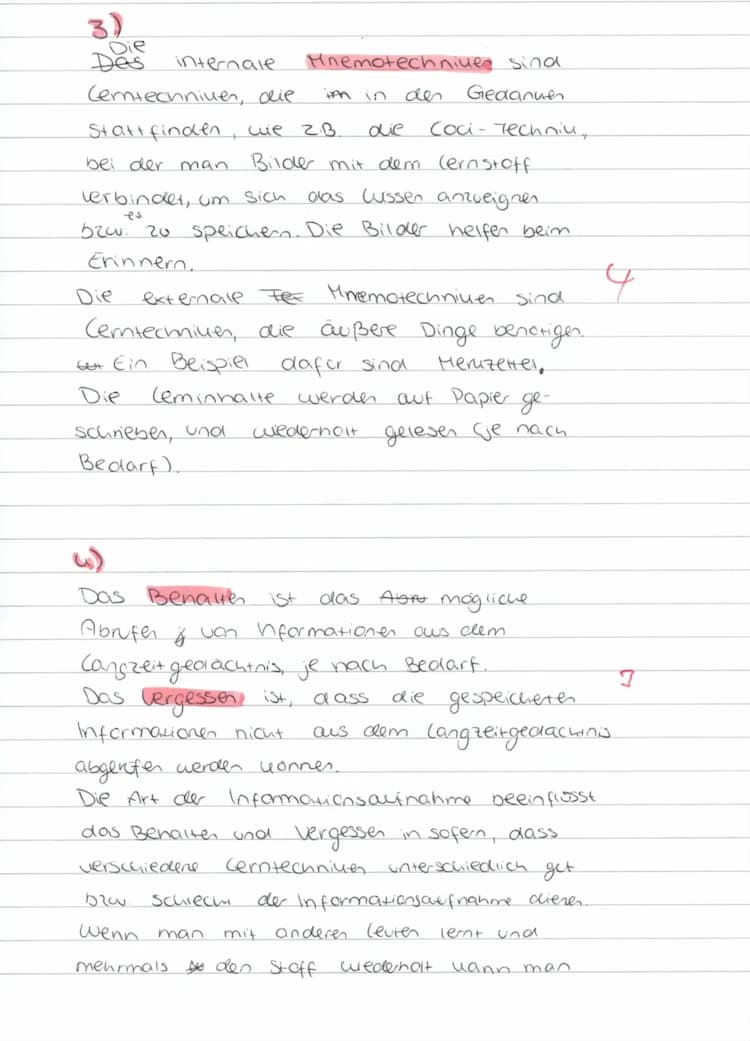 3)
Die
Das internale Mnemotechniken sind
Lerntechniken, die im in den Gedanken
stattfinden, wie z.B. die Loci-Technik,
bei der man Bilder mit dem Lernstoff
verbindet, um sich das Wissen anzueignen
es
bzw. zu speichern. Die Bilder helfen beim
Erinnern.
4
Die externale Te Mnemotechniken sind
Lerntechniken, die äußere Dinge benötigen.
Ein Beispiel dafür sind Merkzettel.
Die Lerninhalte werden auf Papier ge-
schrieben, und wiederholt gelesen (je nach
Bedarf).
4)
Das Behalten ist das Abru mögliche
Abrufen von Informationen aus dem
Langzeitgedächtnis, je nach Bedarf.
Das Vergessen ist, dass die gespeicherten
Informationen nicht aus dem Langzeitgedächtnis
abgerufen werden können.
Die Art der Informationsaufnahme beeinflusst
das Behalten und Vergessen in sofern, dass
verschiedene Lerntechniken unterschiedlich gut
bzw. schlecht der Informationsaufnahme dienen.
Wenn man mit anderen Leuten lernt und
mehrmals den Stoff wiederholt kann man